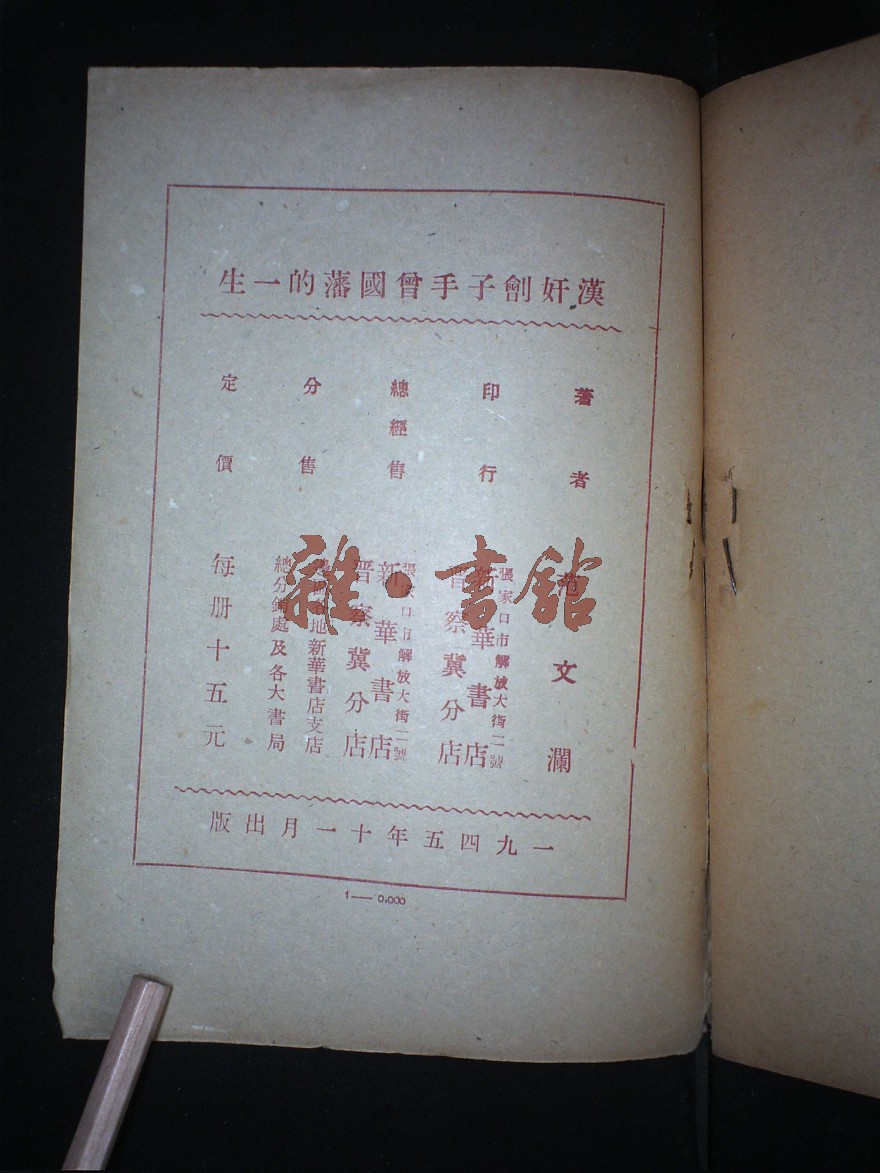 漢奸劊子手曾國藩的一生
著者 范文瀾
印行
張家口市解放大街二號
新華書店
晉察冀分店
總經售
張家口市解放大街二號
新華書店
晉察冀分店
分售
各地新華書店支店
總分銷處及各大書局
定價 每册十五元
一九四五年十一月出版
1——0,000
雜·書館